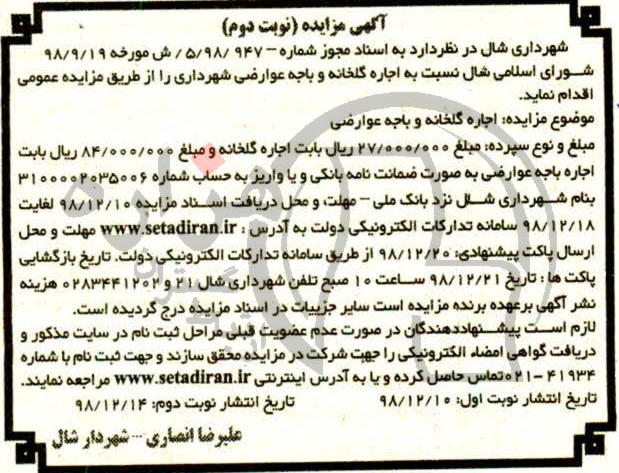 آگهی مزایده (نوبت دوم)
شهرداری شال در نظردارد به اسناد مجوز شماره – ۹۴۷ /۵/۹۸ ش مورخه ۹۸/۹/۱۹
شورای اسلامی شال نسبت به اجاره گلخانه و باجه عوارضی شهرداری را از طریق مزایده عمومی
اقدام نماید.
موضوع مزایده: اجاره گلخانه و باجه عوارضی
مبلغ و نوع سپرده: مبلغ ۲۷/۰۰۰/۰۰۰ ریال بابت اجاره گلخانه و مبلغ ۸۴/۰۰۰/۰۰۰ ریال بابت
اجاره باجه عوارضی به صورت ضمانت نامه بانکی و یا واریز به حساب شماره ۳۱۰۰۰۰۲۰۳۵۰۰۶
بنام شهرداری شال نزد بانک ملی – مهلت، و محل دریافت اسناد مزایده ۹۸/۱۲/۱۰ لغایت
۹۸/۱۲/۱۸ سامانه تدارکات الکترونیکی دولت به آدرس : www.setadiran.ir مهلت و محل
ارسال پاکت پیشنهادی: ۹۸/۱۲/۲۰ از طریق سامانه تدارکات الکترونیکی دولت. تاریخ بازگشایی
پاکت ها : تاریخ ۹۸/۱۲/۲۱ ساعت ۱۰ صبح تلفن شهرداری شال ۲۱ و ۰۲۸۳۴۴۱۲۰۲ هزینه
نشر آگهی برعهده برنده مزایده است سایر جزییات در اسناد مزایده درج گردیده است.
لازم است پیشنهاددهندگان در صورت عدم عضویت قبلی مراحل ثبت نام در سایت مذکور و
دریافت گواهی امضاء الکترونیکی را جهت شرکت در مزایده محقق سازند و جهت ثبت نام با شماره
۴۱۹۳۴-۰۲۱ تماس حاصل کرده و یا به آدرس اینترنتی www.setadiran.ir مراجعه نمایند.
تاریخ انتشار نوبت اول: ۹۸/۱۲/۱۰ تاریخ انتشار نوبت دوم: ۹۸/۱۲/۱۴
علیرضا انصاری – شهردار شال